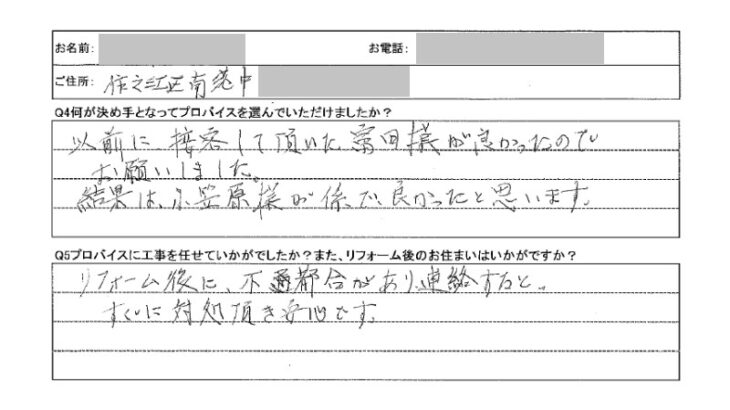 お名前: お電話:
ご住所: 住之江区南港中
Q4何が決め手となってプロバイスを選んでいただけましたか？
以前に、接客して頂いた富田様が良かったので
お願いしました。
結果は、小笠原様が係で、良かったと思います。
Q5プロバイスに工事を任せていかがでしたか？また、リフォーム後のお住まいはいかがですか？
リフォーム後に、不都合があり連絡すると、
すぐに対処頂き安心です。